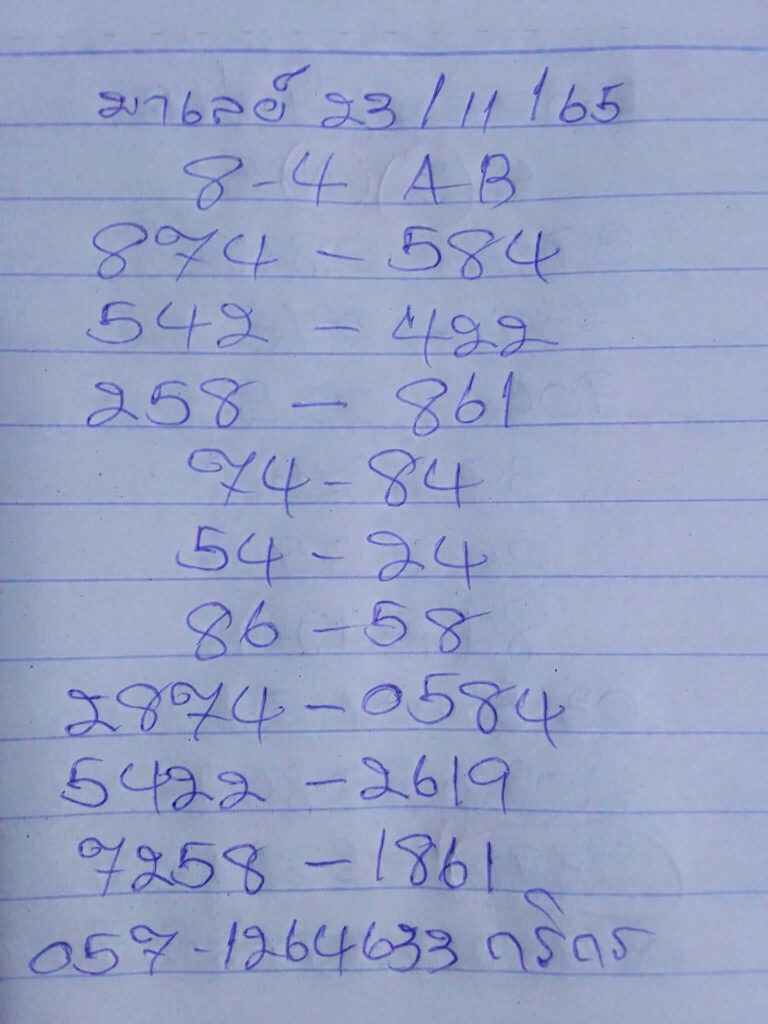 มาเลย์ 23/11/65
8-4 AB
874 - 584
542 - 422
258 - 861
74-84
54-24
86-58
2874-0584
5422-2619
7258-1861
057-1264633